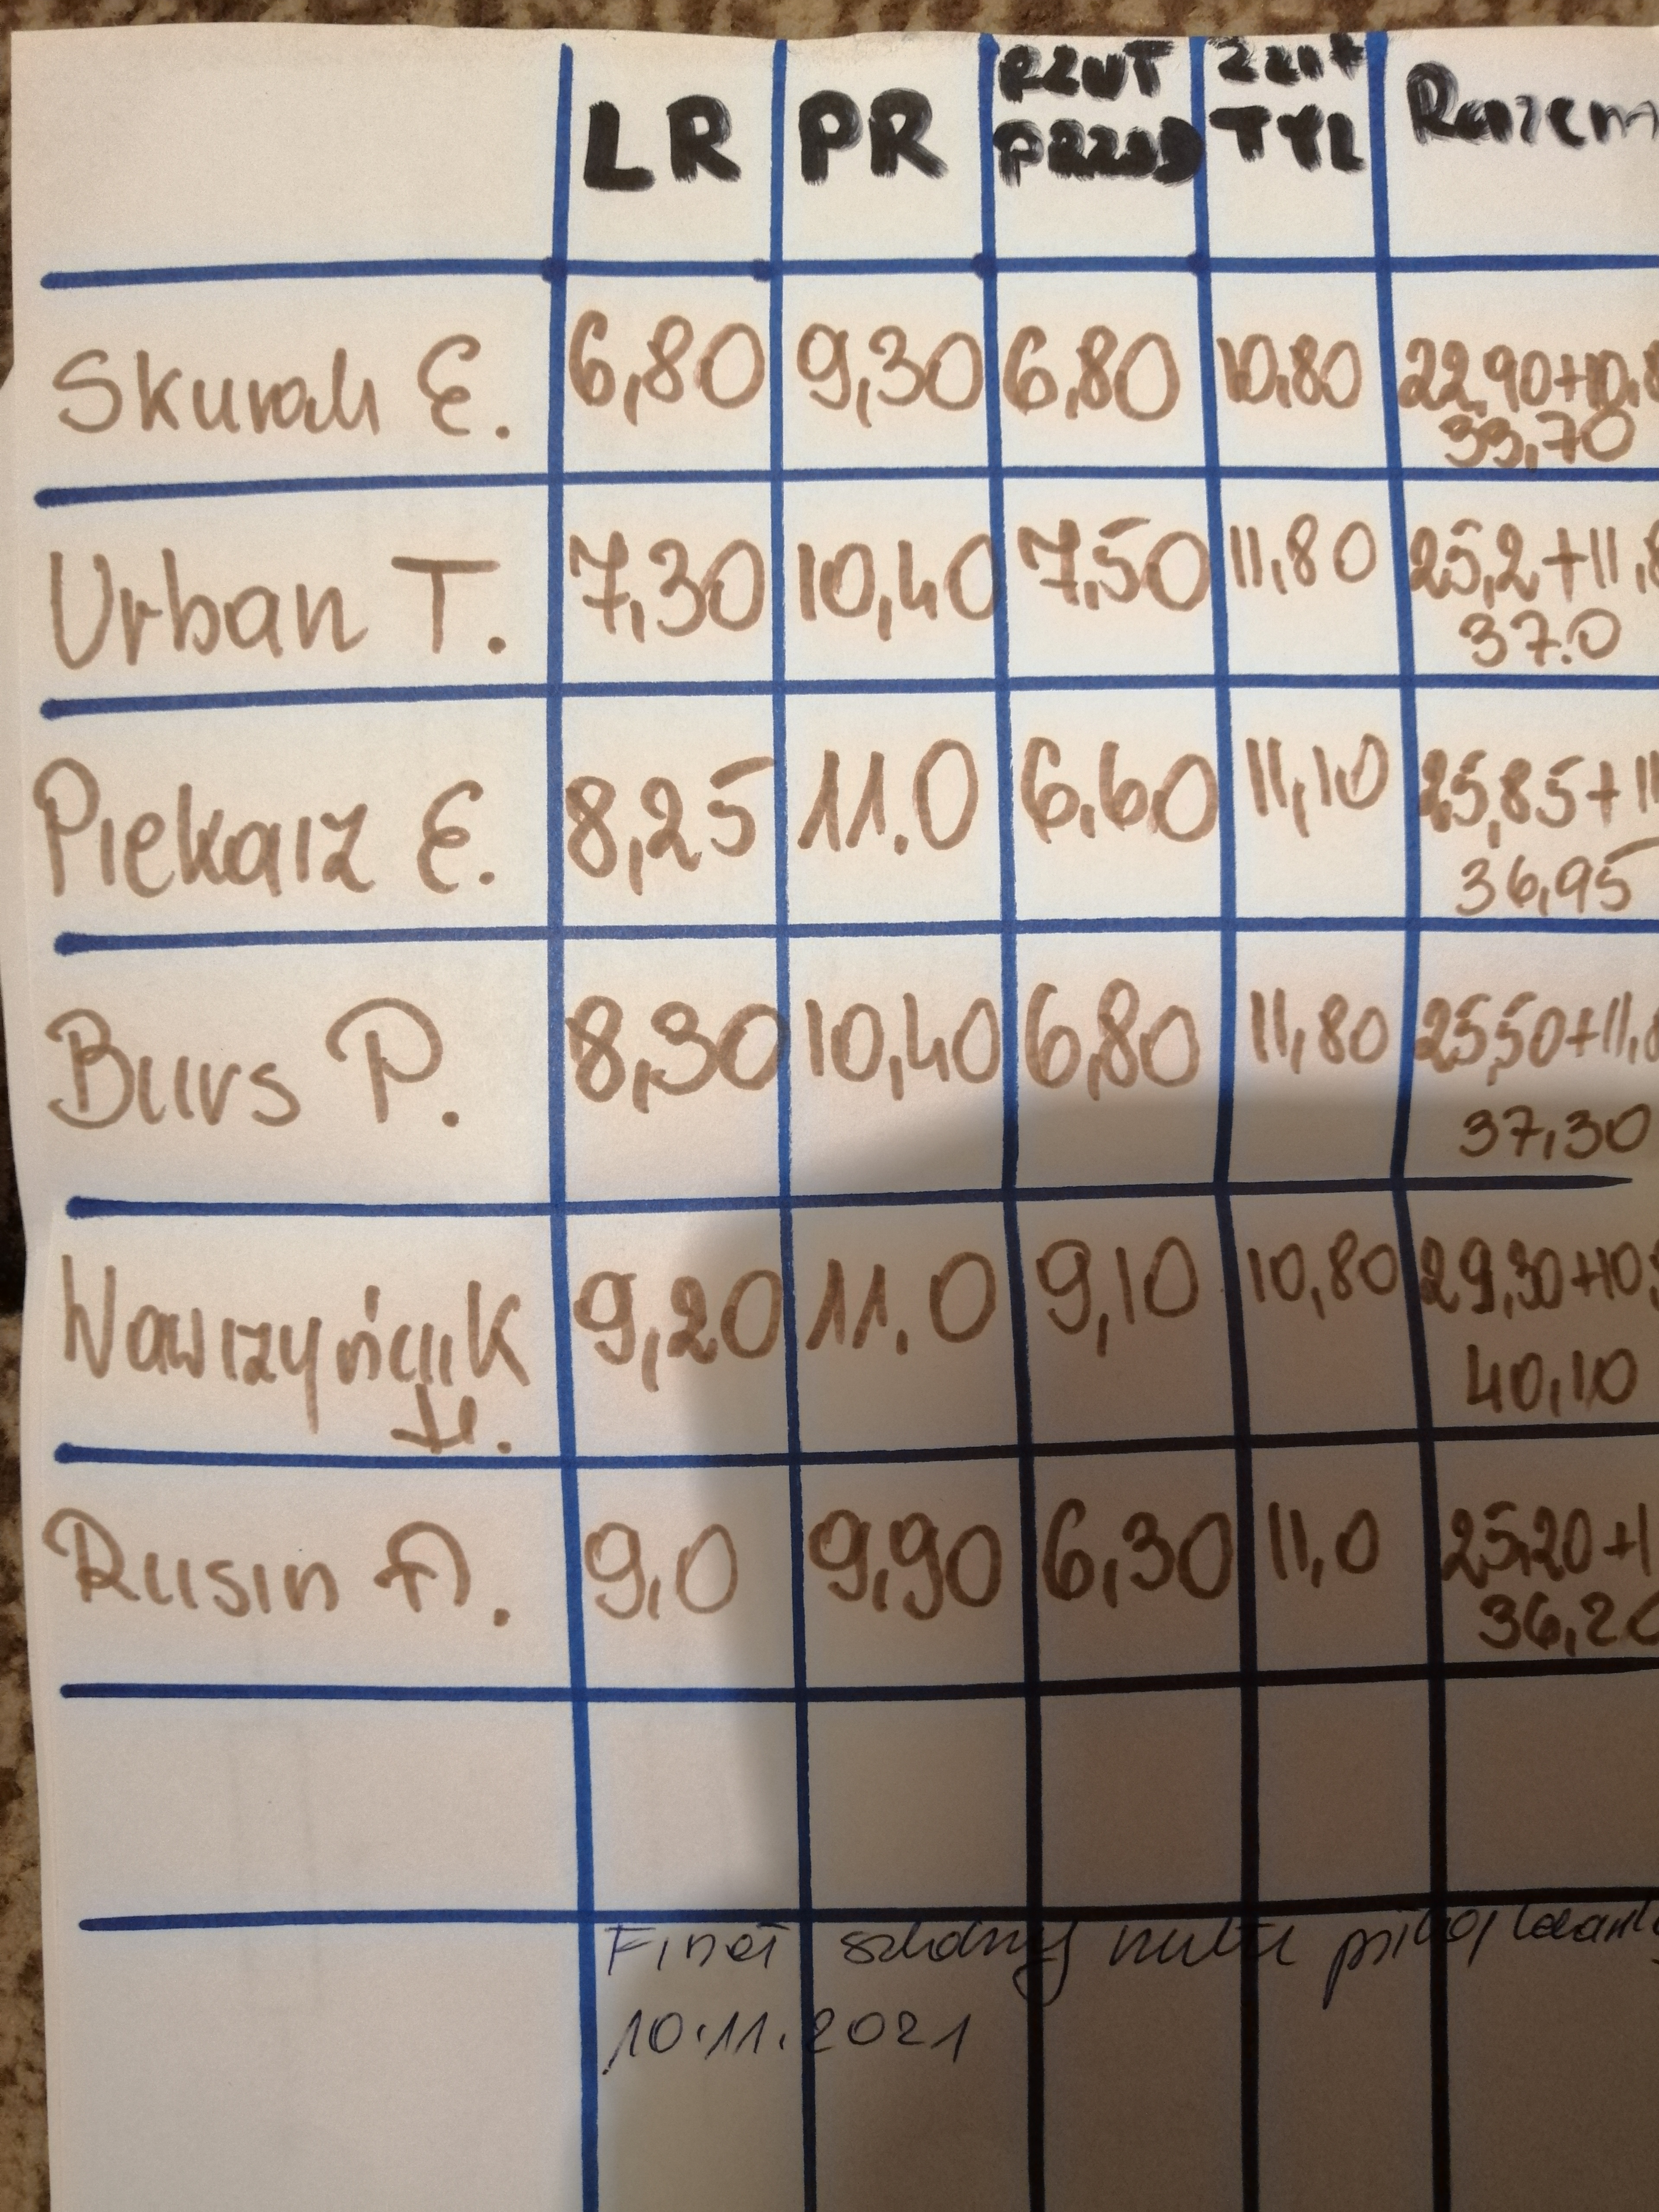 LR PR RZUT PRZÓD RZUT TYŁ Razem
Skurah E. 6,80 9,30 6,80 10,80 22,90+10,8
33,70
Urban T. 7,30 10,40 7,50 11,80 25,2+11,8
37.0
Piekarz E. 8,25 11.0 6.60 11,10 25,85+11
36,95
Burs P. 8,30 10,40 6,80 11,80 25,50+11,8
37,30
Wawrzyńczyk 9,20 11.0 9,10 10,80 29,30+10,
40,10
Rusin A. 9,0 9,90 6,30 11,0 25,20+1
36,20
Finał szkolny rzutu piłką
10.11.2021